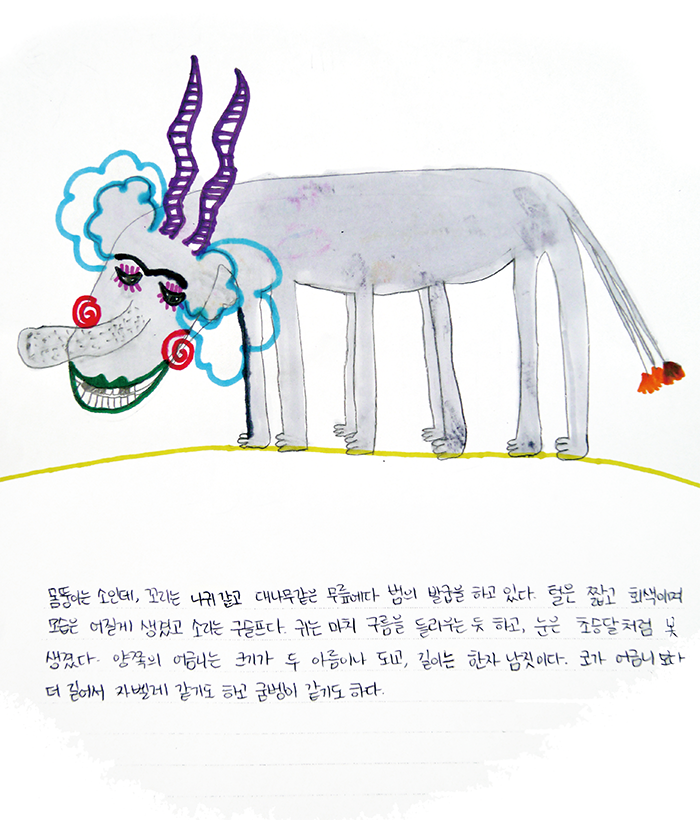 몸뚱이는 소인데, 꼬리는 나귀 같고 대나무같은 무릎에다 범의 발굽을 하고 있다. 털은 짧고 회색이며
모습은 어질게 생겼고 소리는 구슬프다. 귀는 마치 구름을 드리우는 듯 하고, 눈은 초승달처럼 못
생겼다. 양쪽의 어금니는 크기가 두 아름이나 되고, 길이는 한자 남짓이다. 코가 어금니 보다
더 길어서 자벌레 같기도 하고 굼벵이 같기도 하다.